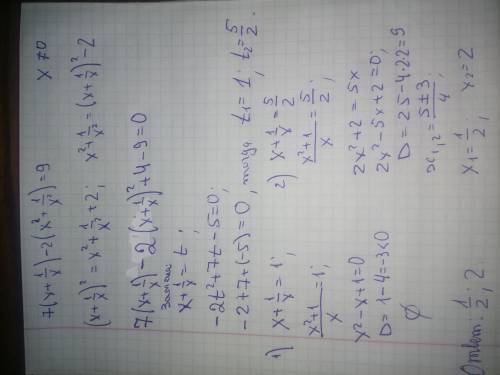 7(x+1/x)-2(x²+1/x²)=9    x≠0
(x+1/x)²=x²+1/x²+2;    x²+1/x²=(x+1/x)²-2
7(x+1/x)-2(x+1/x)²+4-9=0
Замена:
x+1/x=t;
-2t²+7t-5=0;
-2+7+(-5)=0, тогда t₁=1; t₂=5/2.
1) x+1/x=1;
(x²+1)/x=1;
x²-x+1=0
D=1-4=-3<0
∅
2) x+1/x=5/2
(x²+1)/x=5/2;
2x²+2=5x
2x²-5x+2=0;
D=25-4·2·2=9
x₁,₂=(5±3)/4;
x₁=1/2    x₂=2
Ответ: 1/2; 2